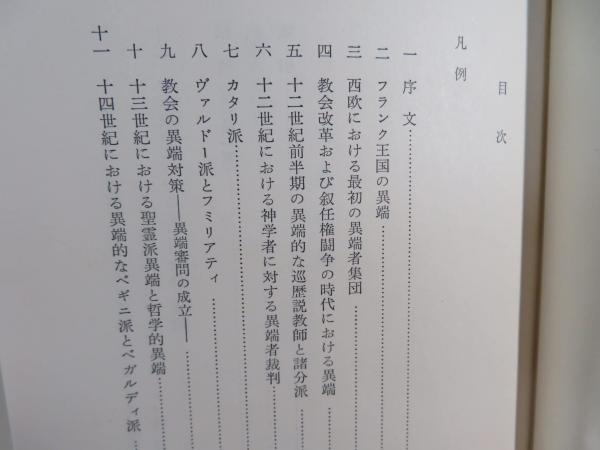 目次
凡例
一 序文
二 フランク王国の異端
三 西欧における最初の異端者集団
四 教会改革および叙任権闘争の時代における異端
五 十二世紀前半期の異端的な巡歴説教師と諸分派
六 十二世紀における神学者に対する異端者裁判
七 カタリ派
八 ヴァルドー派とフミリアティ
九 教会の異端対策――異端審問の成立――
十 十三世紀における聖霊派異端と哲学的異端
十一 十四世紀における異端的なベギニ派とベガルディ派